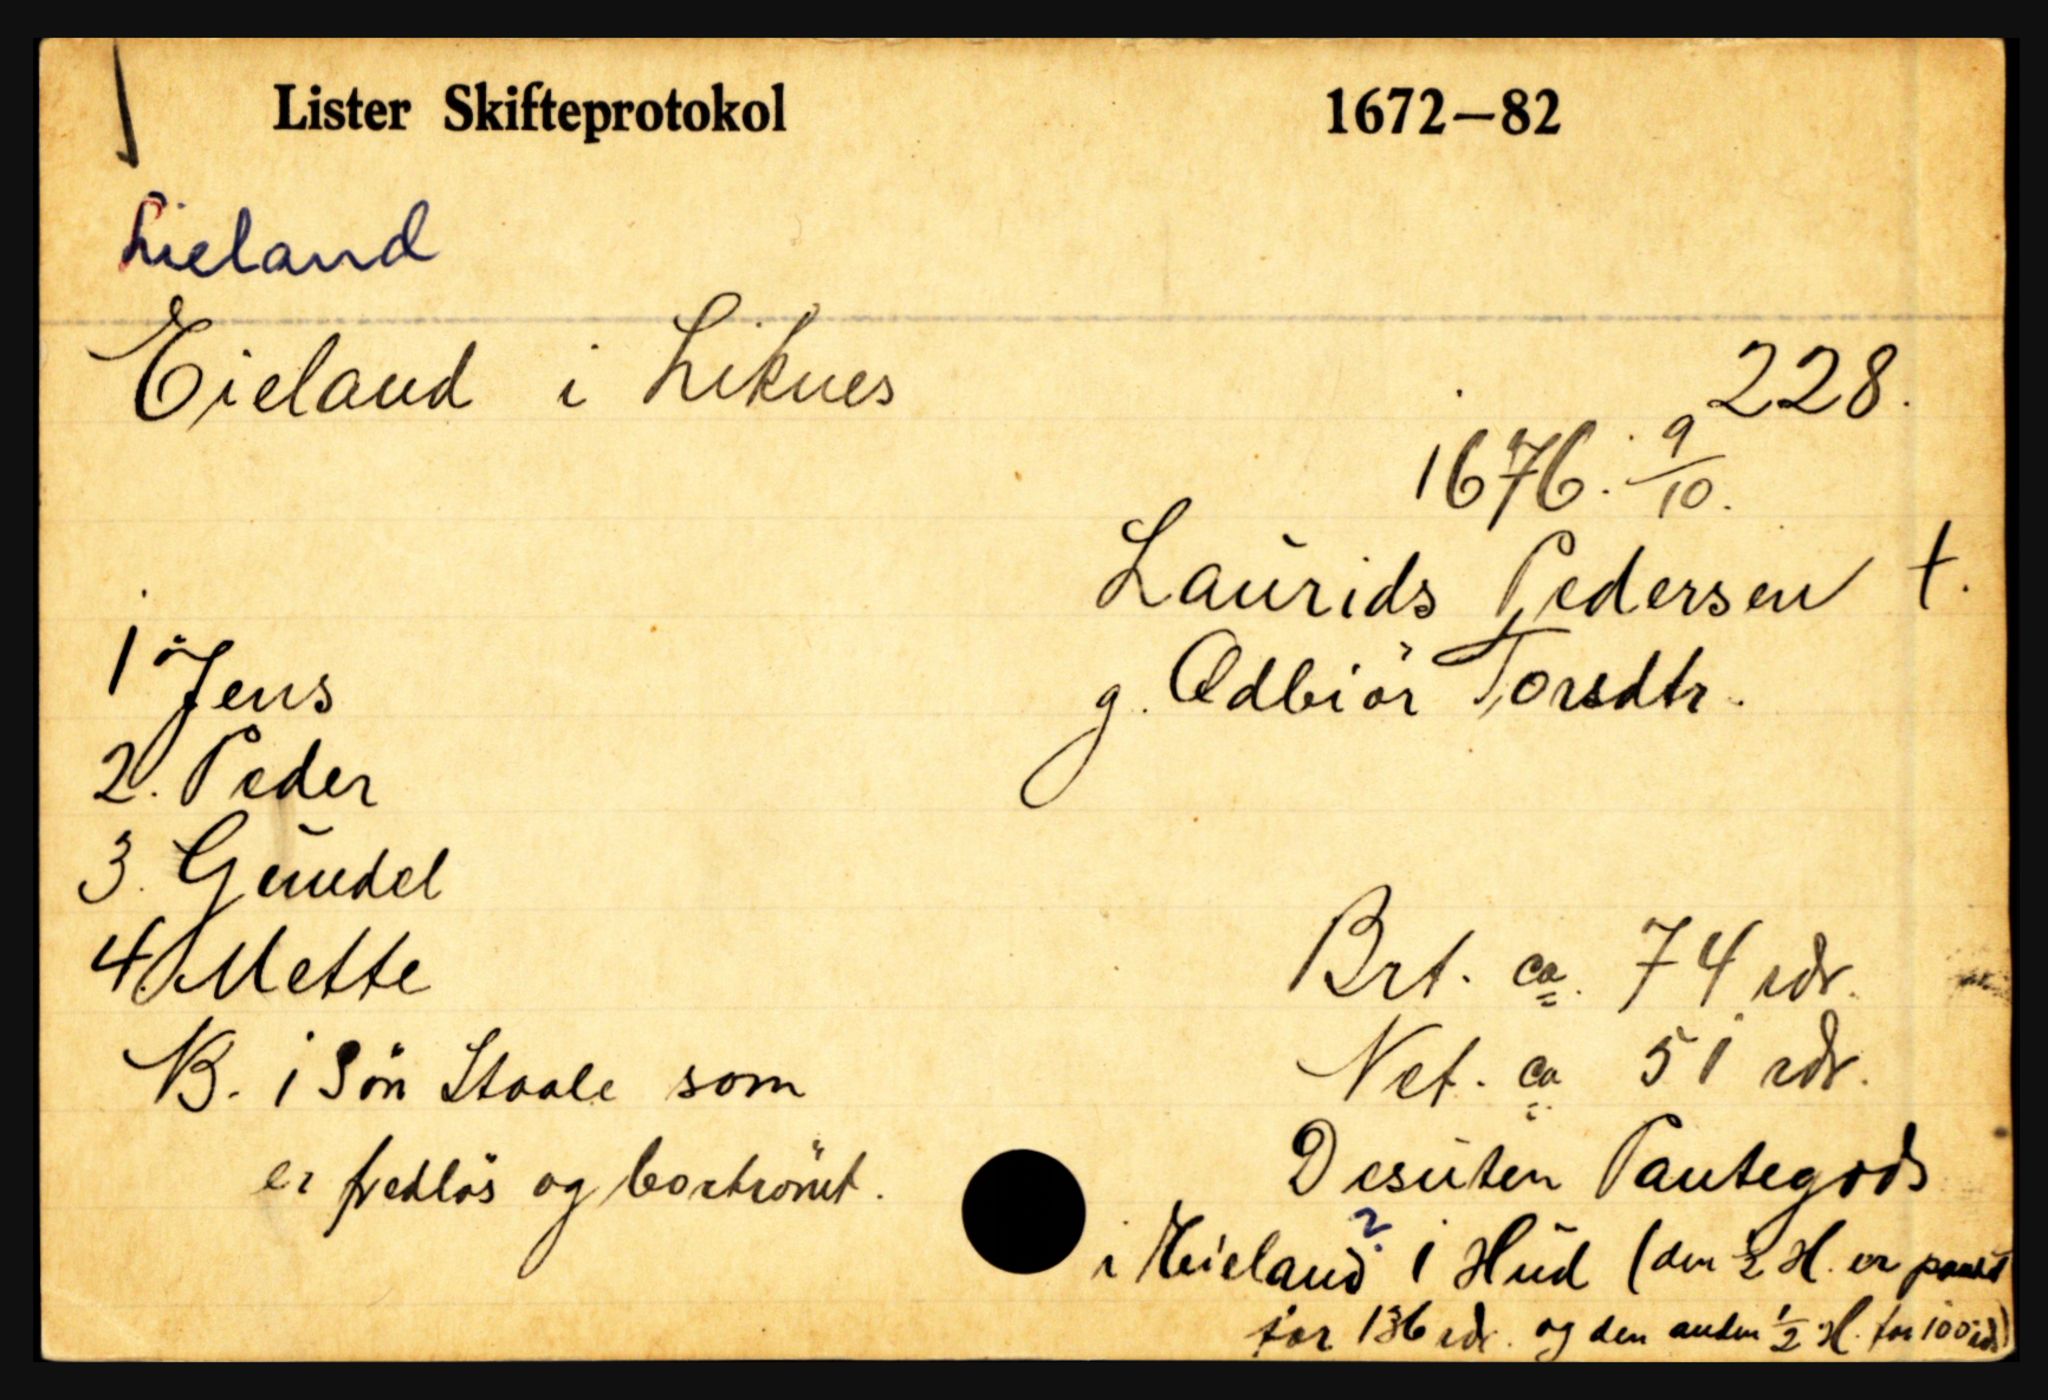 Lister Skifteprotokol 1672–82
Lieland
Eieland i Liknes 228.
1676. 9/10.
Laurids Pedersen †.
g. Adbiör Torsdtr.
1 Jens
2. Peder
3. Gundel
4. Mette
Brt. ca. 74 rdr.
NB. 1 Sön Staale som
Net. ca 51 rdr.
er fredlös og bortrömt.
Desuten Pantegods
i Eieland ? 1 Hud (den ½ H. er pantet
for 136 rdr. og den anden ½ H. for 100 rdr)